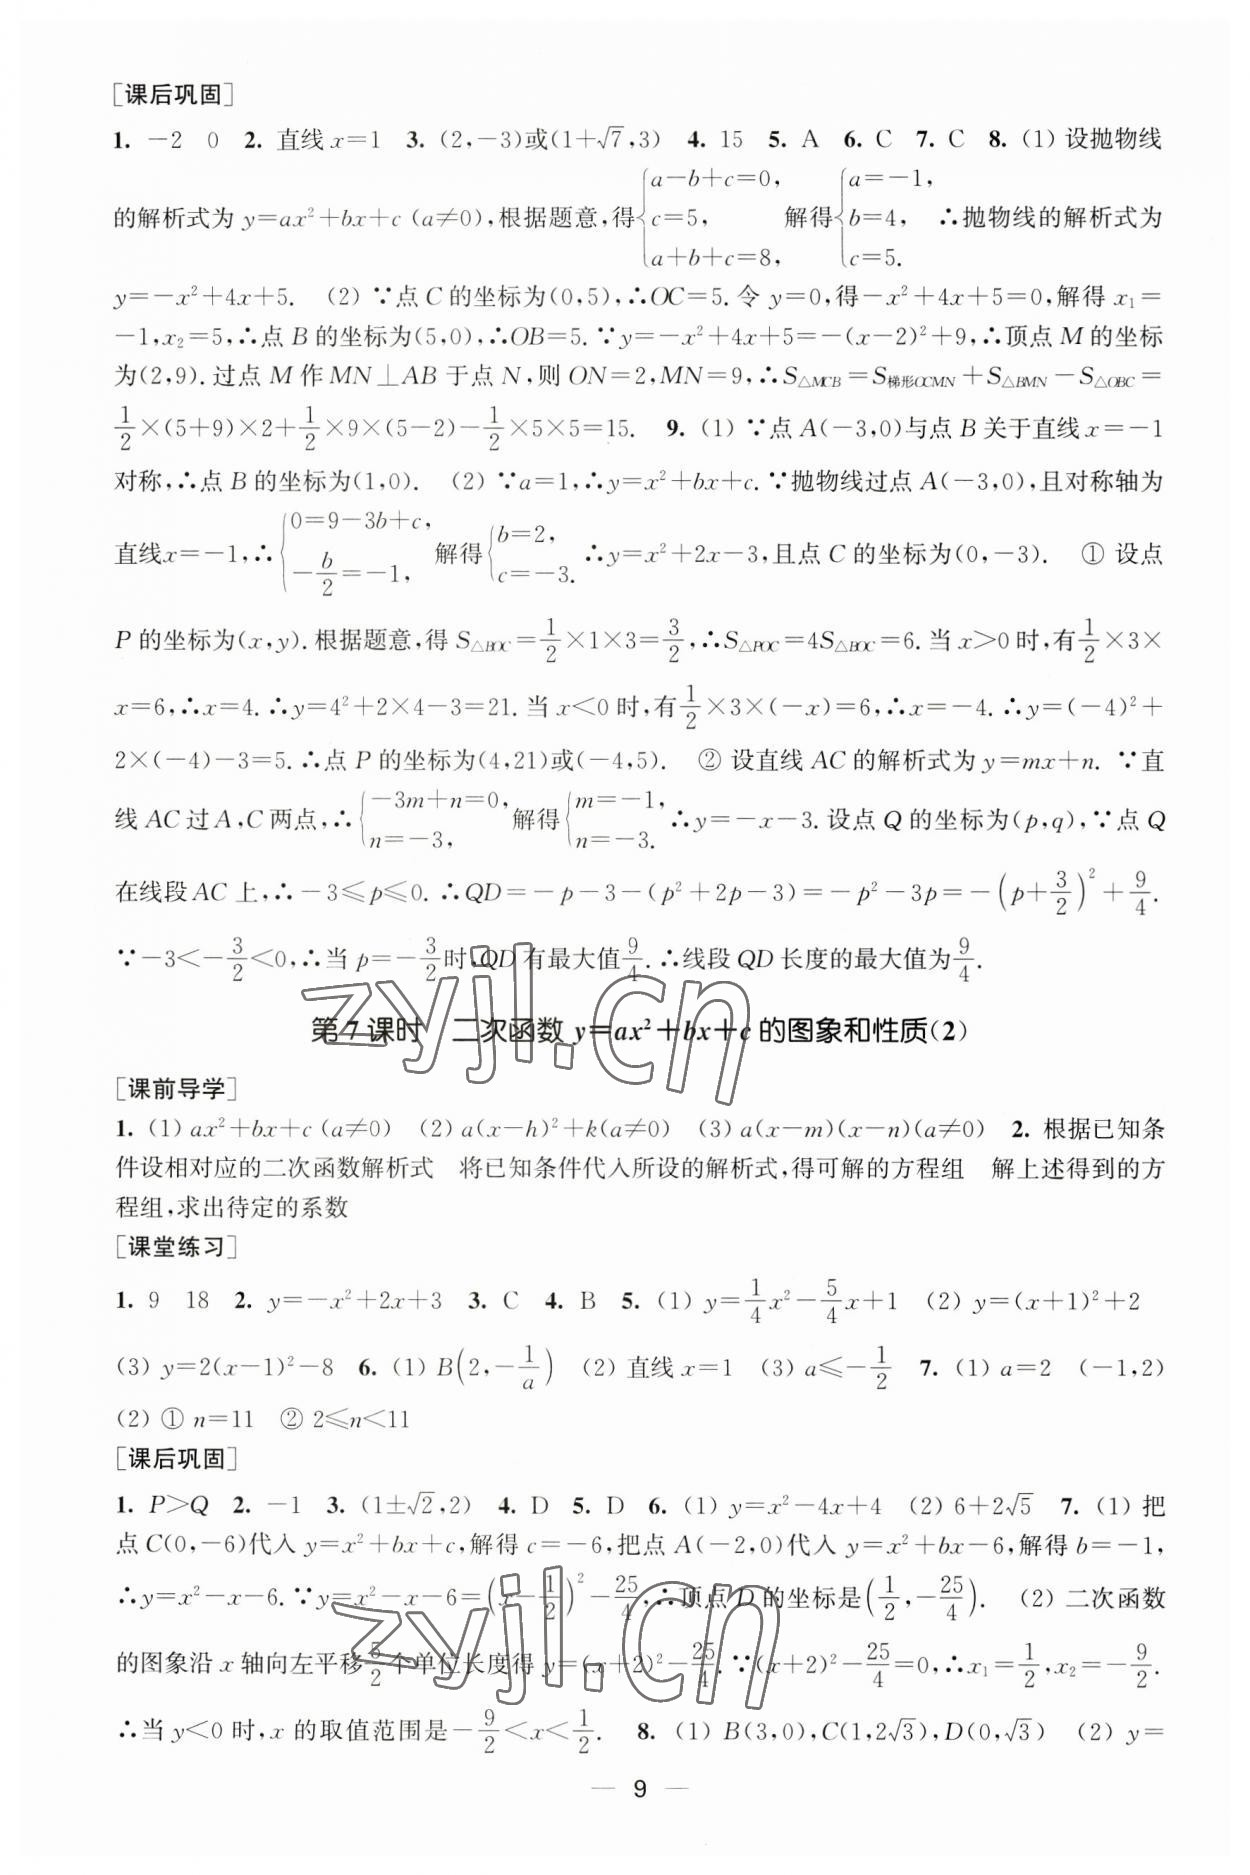 [课后巩固]
1. −2 0 2. 直线 x=1 3. (2,−3)或(1+√7,3) 4. 15 5. A 6. C 7. C 8. (1) 设抛物线
的解析式为 y=ax²+bx+c (a≠0),根据题意,得{a−b+c=0, c=5, a+b+c=8, 解得{a=−1, b=4, c=5. ∴抛物线的解析式为
y=−x²+4x+5. (2) ∵点 C 的坐标为(0,5),∴OC=5.令 y=0,得−x²+4x+5=0,解得 x₁=
−1,x₂=5,∴点 B 的坐标为(5,0),∴OB=5.∵y=−x²+4x+5=−(x−2)²+9,∴顶点 M 的坐标
为(2,9).过点 M 作 MN⊥AB 于点 N,则 ON=2,MN=9,∴S△MCB=S梯形OCMN+S△BMN−S△OBC=
1/2×(5+9)×2+1/2×9×(5−2)−1/2×5×5=15. 9. (1) ∵点 A(−3,0)与点 B 关于直线 x=−1
对称,∴点 B 的坐标为(1,0). (2) ∵a=1,∴y=x²+bx+c.∵抛物线过点 A(−3,0),且对称轴为
直线x=−1,∴{0=9−3b+c, −b/2=−1, 解得{b=2, c=−3. ∴y=x²+2x−3,且点 C 的坐标为(0,−3). ① 设点
P 的坐标为(x,y).根据题意,得 S△BOC=1/2×1×3=3/2,∴S△POC=4S△BOC=6.当 x>0 时,有1/2×3×
x=6,∴x=4.∴y=4²+2×4−3=21.当 x<0 时,有1/2×3×(−x)=6,∴x=−4.∴y=(−4)²+
2×(−4)−3=5.∴点 P 的坐标为(4,21)或(−4,5). ② 设直线 AC 的解析式为 y=mx+n.∵直
线 AC 过 A,C 两点,∴{−3m+n=0, n=−3, 解得{m=−1, n=−3. ∴y=−x−3.设点 Q 的坐标为(p,q),∵点 Q
在线段 AC 上,∴−3≤p≤0.∴QD=−p−3−(p²+2p−3)=−p²−3p=−(p+3/2)²+9/4.
∵−3<−3/2<0,∴当 p=−3/2时,QD 有最大值9/4.∴线段 QD 长度的最大值为9/4.
第 7 课时 二次函数 y=ax²+bx+c 的图象和性质(2)
[课前导学]
1. (1) ax²+bx+c (a≠0) (2) a(x−h)²+k(a≠0) (3) a(x−m)(x−n)(a≠0) 2. 根据已知条
件设相对应的二次函数解析式 将已知条件代入所设的解析式,得可解的方程组 解上述得到的方
程组,求出待定的系数
[课堂练习]
1. 9 18 2. y=−x²+2x+3 3. C 4. B 5. (1) y=1/4x²−5/4x+1 (2) y=(x+1)²+2
(3) y=2(x−1)²−8 6. (1) B(2,−1/a) (2) 直线 x=1 (3) a≤−1/2 7. (1) a=2 (−1,2)
(2) ① n=11 ② 2≤n<11
[课后巩固]
1. P>Q 2. −1 3. (1±√2,2) 4. D 5. D 6. (1) y=x²−4x+4 (2) 6+2√5 7. (1) 把
点 C(0,−6)代入 y=x²+bx+c,解得 c=−6,把点 A(−2,0)代入 y=x²+bx−6,解得 b=−1,
∴y=x²−x−6.∵y=x²−x−6=(x−1/2)²−25/4,∴顶点 D 的坐标是(1/2,−25/4). (2) 二次函数
的图象沿 x 轴向左平移5/2个单位长度得 y=(x+2)²−25/4.∵(x+2)²−25/4=0,∴x₁=1/2,x₂=−9/2.
∴当 y<0 时,x 的取值范围是−9/2<x<1/2. 8. (1) B(3,0),C(1,2√3),D(0,√3) (2) y=
— 9 —
zyjl.cn
zyjl.cn